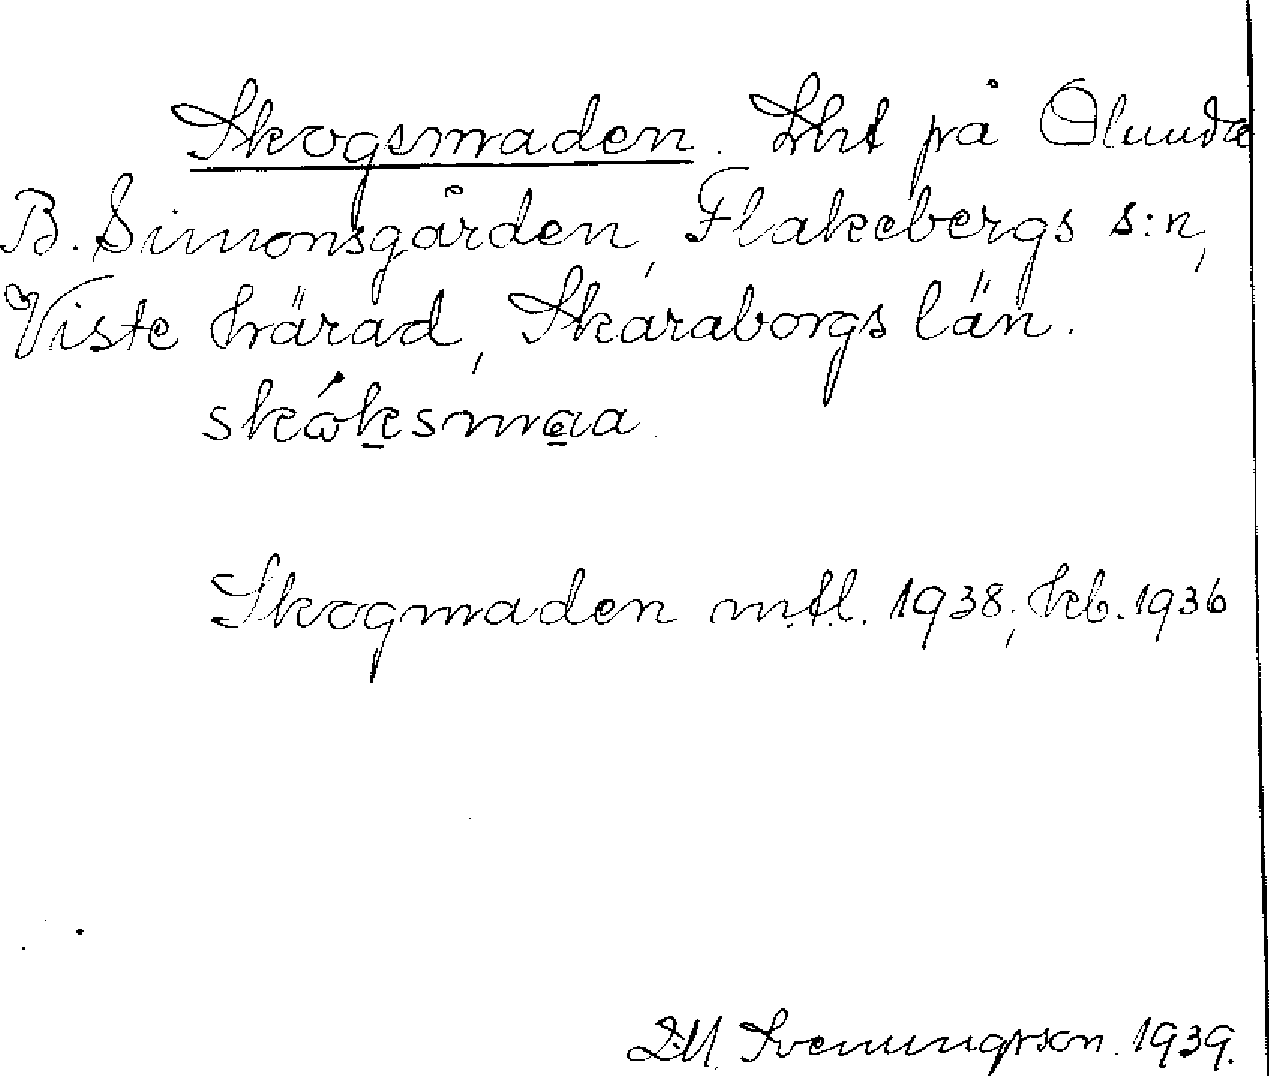 Skogsmaden. Lht på Ölunda
B. Simonsgården, Flakebergs s:n,
Viste härad, Skaraborgs län.
skóksmaa.
Skogmaden m.t.l. 1938; kb. 1936
D.M. Svenungsson. 1939.